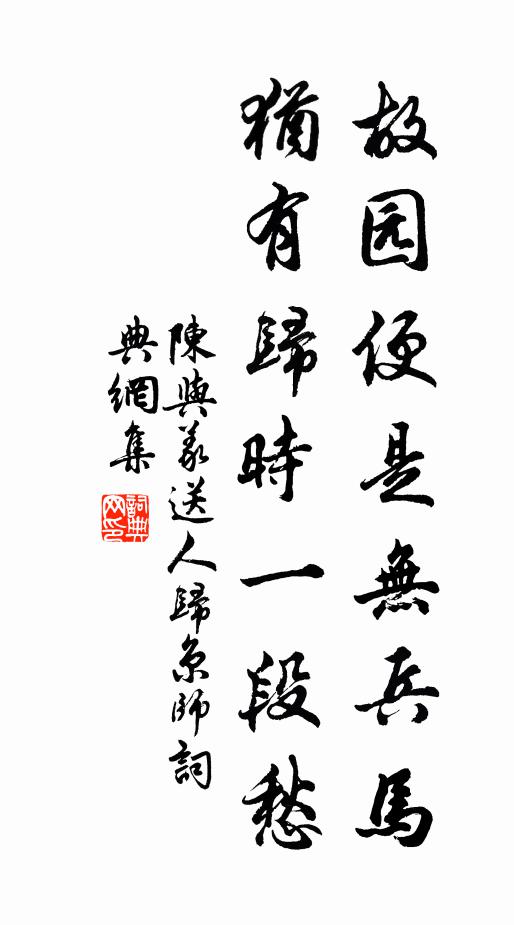 故园便是無兵馬
猶有歸時一段愁
陳與義送人歸京師詞
典網集
詞典
网印